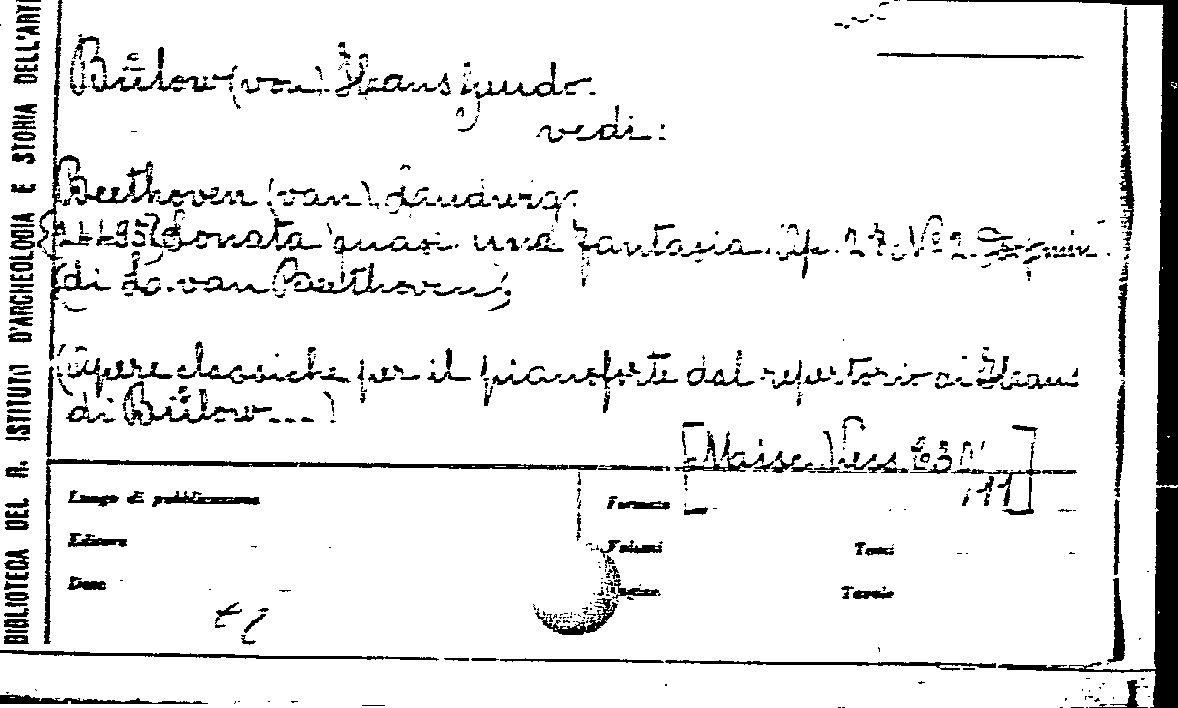 BIBLIOTECA DEL R. ISTITUTO D'ARCHEOLOGIA E STORIA DELL'ARTE
Bülow (von) Hans Guido.
vedi:
Beethoven (van) Laudwig.
Sonata quasi una fantasia. Op. 27. N° 2.
(di Lo. van Beethoven);
(Opere classiche per il pianoforte dal repertorio di Hans
di Bülow...)
[Maise. Vess. 63
Luogo di pubblicazione
Formato
Editore
Volumi
Tomi
Data
Pagine
Tavole